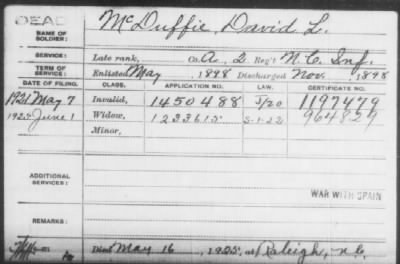 DEAD
NAME OF SOLDIER: McDuffie, David L.
SERVICE: Late rank, Co. A, 2 Reg't N.C. Inf.
TERM OF SERVICE: Enlisted May 1898 Discharged Nov. 1898
DATE OF FILING. CLASS. APPLICATION NO. LAW. CERTIFICATE NO.
1921 May 7 Invalid, 1450488 J/20 1197479
1925 June 1 Widow, 1233615 5-1-22 964829
Minor,
ADDITIONAL SERVICES:
WAR WITH SPAIN
REMARKS:
Died May 16, 1925, at Raleigh, N.C.